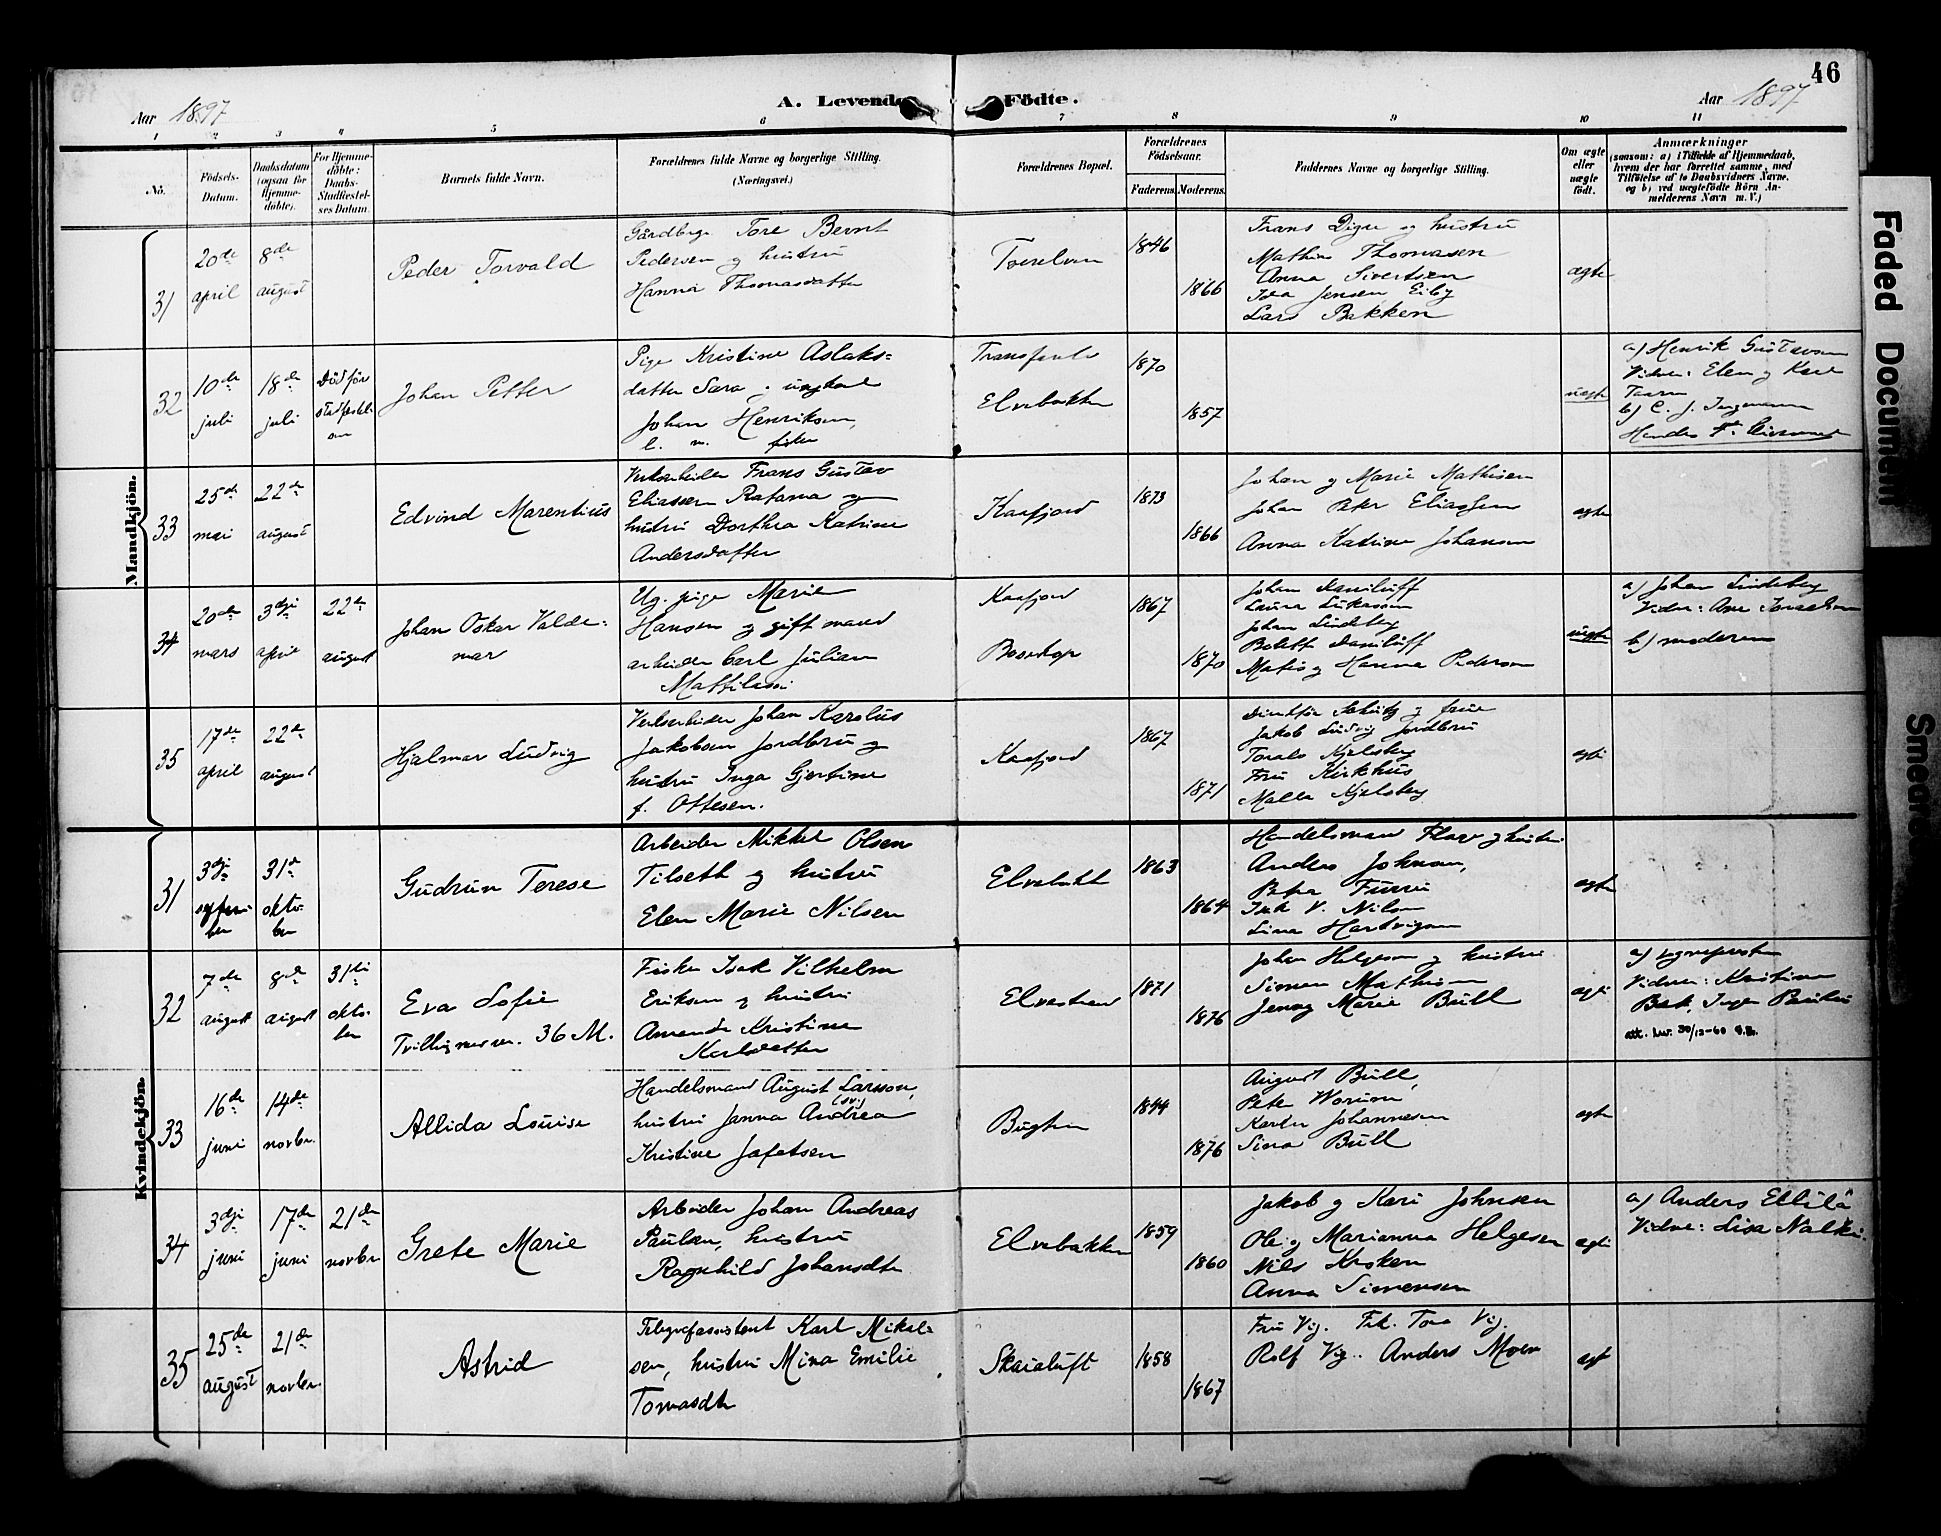 46
Aar 1897
A. Levende Födte.
Aar 1897
1 2 3 4 5 6 7 8 9 10 11
No.
Födsels-
Datum.
Daabsdatum
(ogsaa for
Hjemme-
döbte).
For Hjemme-
döbte:
Daabs-
Stadfæstel-
ses Datum.
Barnets fulde Navn.
Forældrenes fulde Navne og borgerlige Stilling.
(Næringsvei.)
Forældrenes Bopæl.
Forældrenes
Födselsaar.
Faderens.
Moderens.
Faddernes Navne og borgerlige Stilling.
Om ægte
eller
uægte
födt.
Anmærkninger
(saasom: a) i Tilfælde af Hjemmedaab,
hvem der har forrettet samme, med
Tilföielse af to Daabsvidners Navne,
og b) ved uægtefödte Börn An-
melderens Navn m. V.)
Mandkjön.
31
20de
april
8de
august
Peder Torvald
Gårdbrger Tore Bernt
Pedersen og hustru
Hanna Thomasdatter
1846
1866
Frans Digre og hustru
Mathis Thomasen
Anna Sivertsen
Ida Jensen Eiby
Lars Bakken
ægte
32
10de
juli
18de
juli
Död för
stadfestel-
sen
Johan Petter
Pige Kristine Aslaks=
datter Sara og ungkarl
Johan Henriksen,
l. m. fisker
Elvebakken
1870
1857
uægte
a) Henrik Gustavsen
Vidner: Elen og Karl
b) C. J. Ingemann
33
25de
mai
22de
august
Edvind Marentius
Verksarbeider Frans Gustav
Eliassen Ratama og
hustru Dorthea Katrine
Andersdatter
Kaafjord
1873
1866
Johan og Marie Mathisen
Johan Peter Eliassen
Anna Katrine Johansen
ægte
34
20de
mars
3dje
april
22de
august
Johan Oskar Valde=
mar
Ug. pige Marie
Hansen og gift mand
arbeider Carl Julian
Mattilassi
Kaafjord
Bossekop
1867
1870
Johan Daniluff
Laura Lukassen
Johan Lindeberg
Daniluff
Mathis og Hanna Pedersen
uægte
a) Johan Lindeberg
Vidne: Ane Israelsen
b) moderen
35
17de
april
22de
august
Hjalmar Ludvig
Verksarbeider Johan Karolus
Jakobsen Jordbru og
hustru Inga Gjertine
f. Ottesen.
Kaafjord
1867
1871
Direktör Schütz og frue
Jakob Ludvig Jordbru
Kjelsberg
Fru Kirkhus
Malla Kjelsberg
ægte
Kvindekjön.
31
3dje
septem-
ber
31te
okto-
ber
Gudrun Terese
Arbeider Mikkel Olsen
Tilseth og hustru
Elen Marie Nilsen
Elvebakk
1863
1864
Handelsmand og hustru
Anders Johnsen,
V. Nilsen
Lina Hartvigsen
ægte
32
7de
august
8de
august
31te
okto-
ber
Eva Sofie
Tvillingnumer. 36 M.
Fisker Isak Vilhelm
Eriksen og hustru
Amanda Kristine
Karlsdatter
Elvestrand
1871
1876
Johan Helgesen og hustru
Simon Mathisen
Jenny Marie Bull
ægte
a) sognepresten
Vidner: Kristian
Bæk, Inger
att. utv. 30/12-60 S.B.
33
16de
juni
14de
novbr.
Allida Louise
Handelsmand August Larsson,
(sv.)
hustru Janna Andrea
Kristine Jafetsen
Bugten
1844
1876
August Bull,
Peter Worum
Karen Johannesen
Sina Bull
ægte
34
3dje
juni
17de
juni
21de
novbr
Grete Marie
Arbeider Johan Andreas
Paulsen, hustru
Ragnhild Johansdtr
Elvebakken
1859
1860
Jakob og Kari Johnsen
Ole og Marianna Helgesen
Nils Kroken
Anna Simensen
ægte
a) Anders Ellilä
Vidne: Lisa Nalki.
35
25de
august
21de
novbr.
Astrid
Telegrafassistent Karl Mikal-
sen, hustru Mina Emilie
Tomasdtr
Skaialuft
1858
1867
Fru Vig. Frk. Tora Vig.
Rolf Vig. Anders Moen
ægt
Faded Document
Smeared